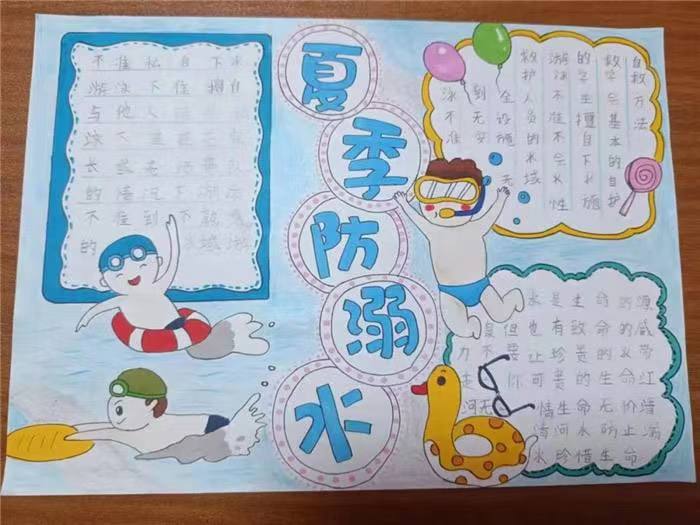 夏季防溺水
不准私自下水
游泳不准擅自
与他人
泳不准
长或无
的情况下游泳
不准到不熟悉
的 水域游
自救方法
教学会基本的自护
的学生擅自下水施
游泳不准不会水性
救护人员的水域
全设施 无
到无安
泳不准
水是生命的源
但也有致命的威
力不要让珍贵的水带
走 你可贵的生命江
河无 情生命无价
清河水防止溺
水珍惜生命